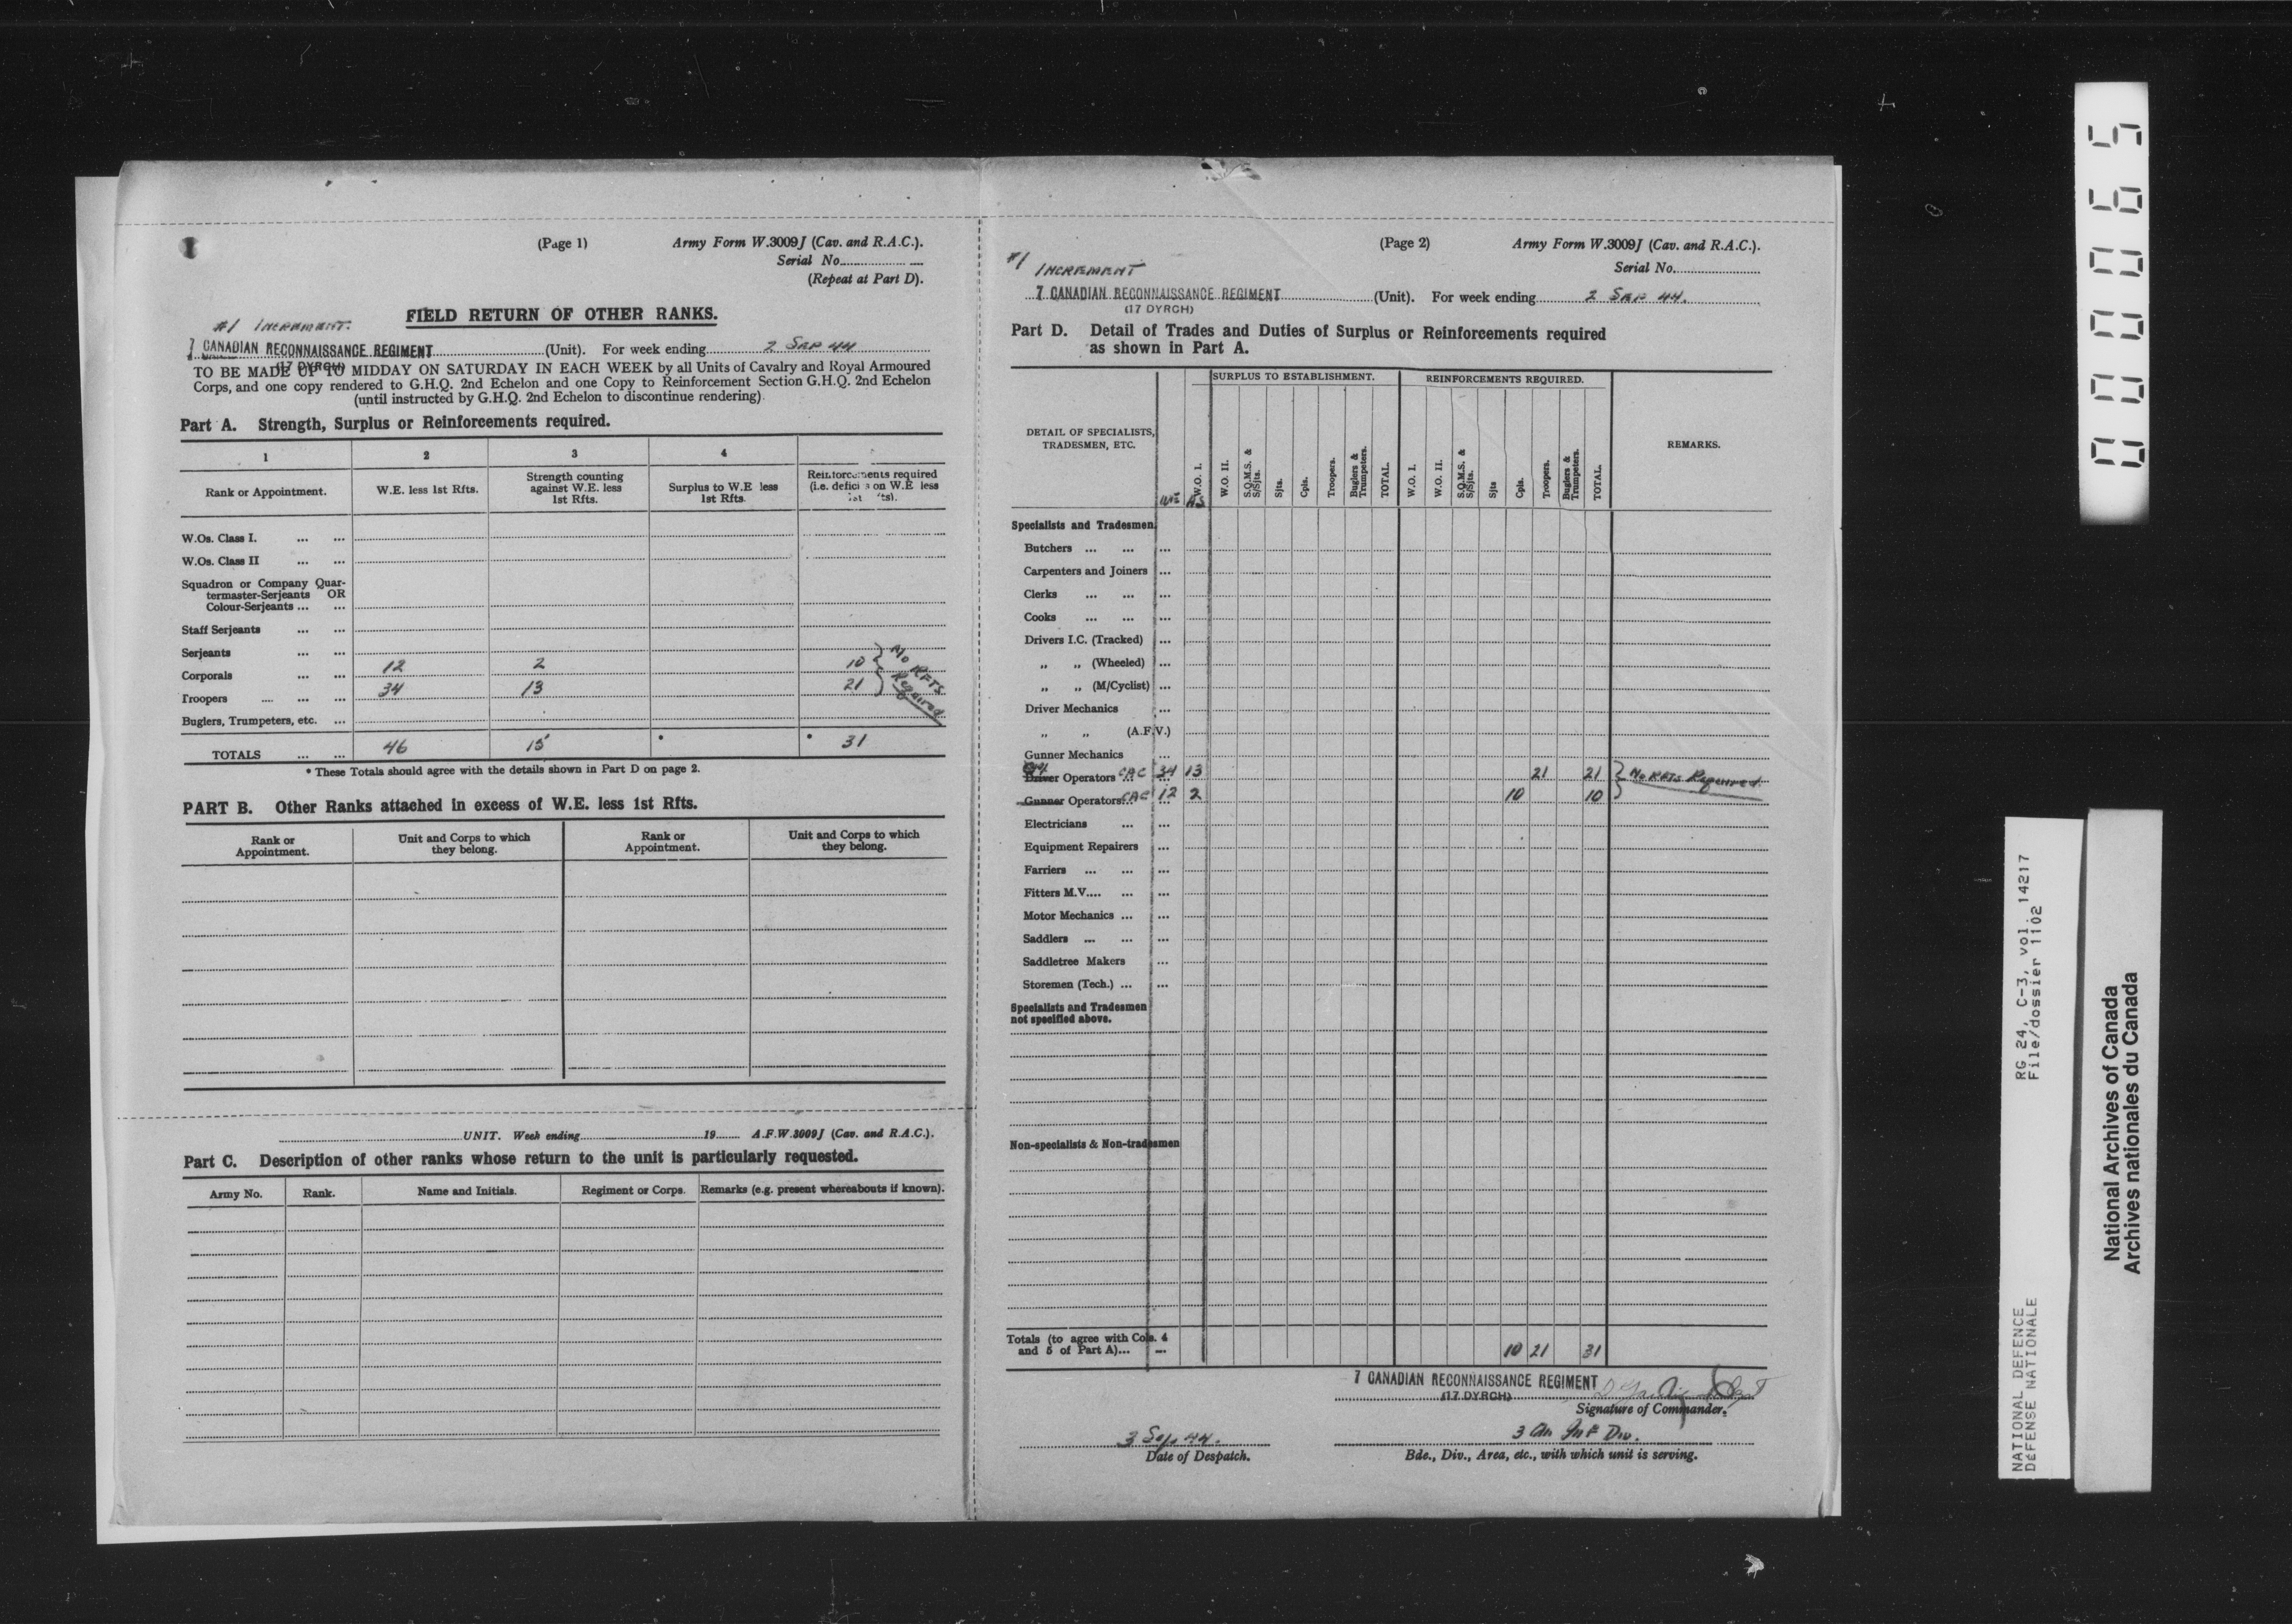 (Page 1) Army Form W.3009J (Cav. and R.A.C.).
Serial No.
(Repeat at Part D).
FIELD RETURN OF OTHER RANKS.
#1 INCREMENT.
7 CANADIAN RECONNAISSANCE REGIMENT (Unit). For week ending 2 SEP 44
(17 DYRCH)
TO BE MADE UP TO MIDDAY ON SATURDAY IN EACH WEEK by all Units of Cavalry and Royal Armoured
Corps, and one copy rendered to G.H.Q. 2nd Echelon and one Copy to Reinforcement Section G.H.Q. 2nd Echelon
(until instructed by G.H.Q. 2nd Echelon to discontinue rendering)
Part A. Strength, Surplus or Reinforcements required.
1 2 3 4
Rank or Appointment.
W.E. less 1st Rfts.
Strength counting
against W.E. less
1st Rfts.
Surplus to W.E less
1st Rfts.
Reinforcements required
(i.e. defici on W.E less
1st Rfts).
W.Os. Class I. ... ...
W.Os. Class II ... ...
Squadron or Company Quar-
termaster-Serjeants OR
Colour-Serjeants ... ...
Staff Serjeants ... ...
Serjeants ... ...
Corporals ... ... 12 2 10
Troopers .... ... ... 34 13 21
No RFTS
Required
Buglers, Trumpeters, etc. ...
TOTALS ... ... 46 15 * * 31
* These Totals should agree with the details shown in Part D on page 2.
PART B. Other Ranks attached in excess of W.E. less 1st Rfts.
Rank or
Appointment.
Unit and Corps to which
they belong.
Rank or
Appointment.
Unit and Corps to which
they belong.
UNIT. Week ending 19 A.F.W.3009J (Cav. and R.A.C.).
Part C. Description of other ranks whose return to the unit is particularly requested.
Army No. Rank. Name and Initials. Regiment or Corps. Remarks (e.g. present whereabouts if known).
(Page 2) Army Form W.3009J (Cav. and R.A.C.).
Serial No.
#1 INCREMENT
7 CANADIAN RECONNAISSANCE REGIMENT (Unit). For week ending 2 SEP 44.
(17 DYRCH)
Part D. Detail of Trades and Duties of Surplus or Reinforcements required
as shown in Part A.
DETAIL OF SPECIALISTS,
TRADESMEN, ETC.
SURPLUS TO ESTABLISHMENT.
REINFORCEMENTS REQUIRED.
REMARKS.
WE AS
W.O. I.
W.O. II.
S.Q.M.S. &
S/Sjts.
Sjts.
Cpls.
Troopers.
Buglers &
Trumpeters.
TOTAL.
W.O. I.
W.O. II.
S.Q.M.S. &
S/Sjts.
Sjts
Cpls.
Troopers.
Buglers &
Trumpeters.
TOTAL.
Specialists and Tradesmen
Butchers ... ... ...
Carpenters and Joiners ...
Clerks ... ... ...
Cooks ... ... ...
Drivers I.C. (Tracked) ...
„ „ (Wheeled) ...
„ „ (M/Cyclist) ...
Driver Mechanics ...
„ „ (A.F.V.)
Gunner Mechanics ...
Driver Operators CAC 34 13 21 21
No RFTS Required
Gunner Operators CAC 12 2 10 10
Electricians ... ...
Equipment Repairers ...
Farriers ... ... ...
Fitters M.V.... ... ...
Motor Mechanics ... ...
Saddlers ... ... ...
Saddletree Makers ...
Storemen (Tech.) ... ...
Specialists and Tradesmen
not specified above.
Non-specialists & Non-tradesmen
Totals (to agree with Cols. 4
and 5 of Part A)... ... 10 21 31
7 CANADIAN RECONNAISSANCE REGIMENT
(17 DYRCH)
Signature of Commander.
3 Sep 44.
Date of Despatch.
3 Cdn Inf Div.
Bde., Div., Area, etc., with which unit is serving.
000065
RG 24, C-3, vol. 14217
File/dossier 1102
NATIONAL DEFENCE
DÉFENSE NATIONALE
National Archives of Canada
Archives nationales du Canada